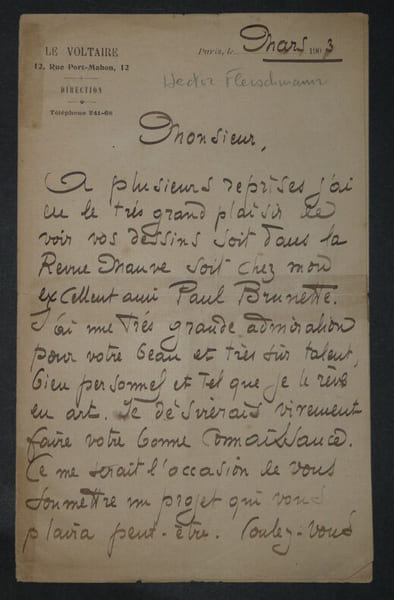 LE VOLTAIRE
12, Rue Port-Mahon, 12
DIRECTION
Téléphone 241-68
Paris, le Mars 1903
Hector Fleischmann
Monsieur,
A plusieurs reprises j'ai
eu le très grand plaisir de
voir vos dessins soit dans la
Revue Mauve soit chez mon
excellent ami Paul Brunette.
J'ai une très grande admiration
pour votre beau et très sûr talent,
bien personnel et tel que je le rêve
en art. Je désirerais vivement
faire votre bonne connaissance.
Ce me serait l'occasion de vous
soumettre un projet qui vous
plaira peut-être. Voulez-vous